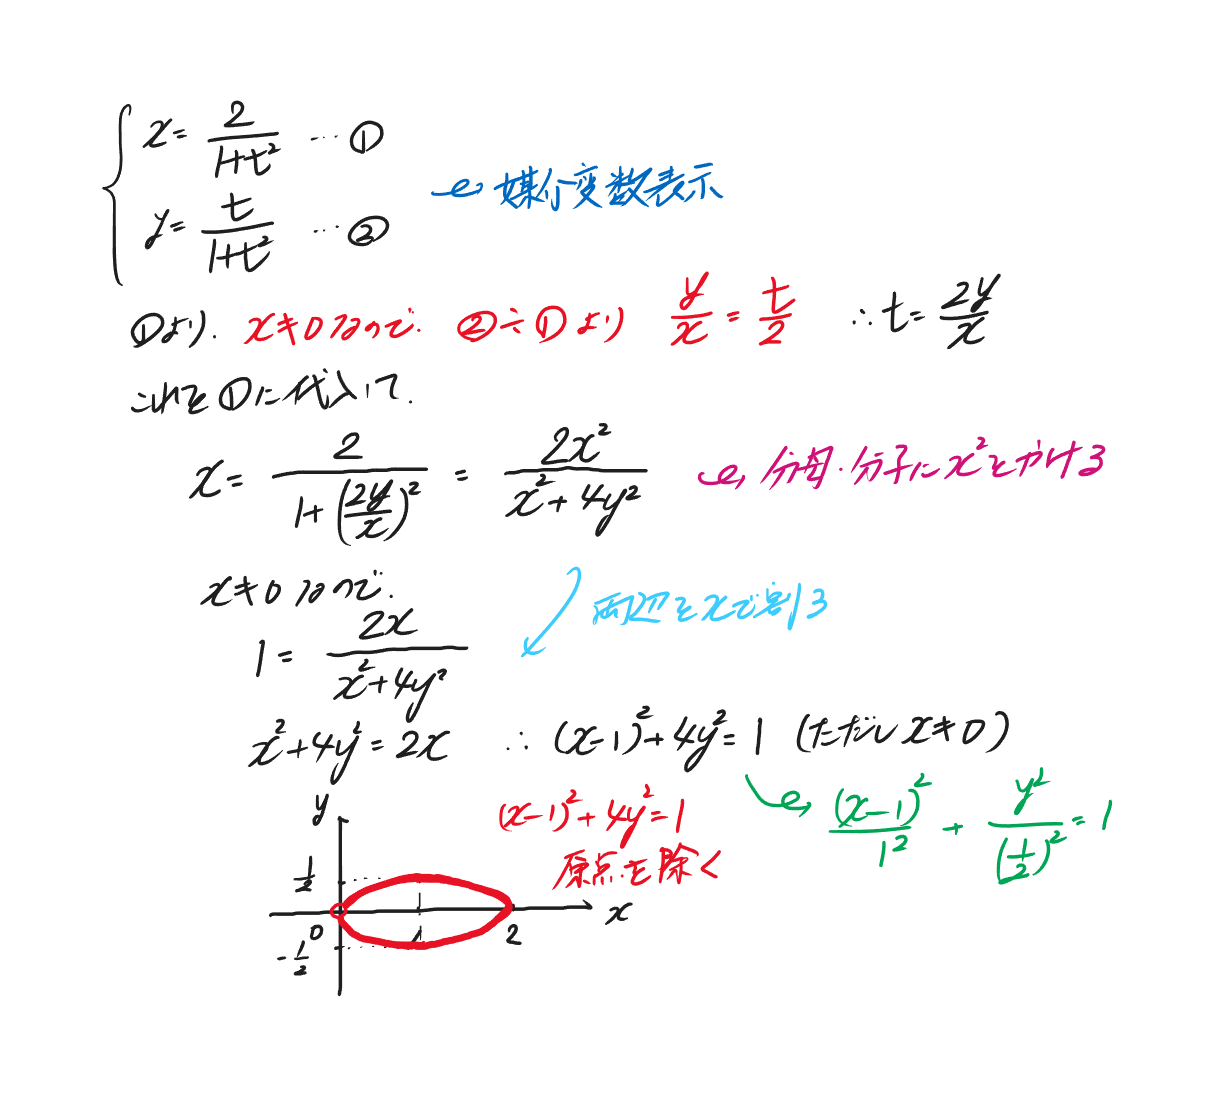 x = 2/(1+t²) … ①
y = t/(1+t²) … ②
媒介変数表示
①より. x≠0なので. ②÷①より y/x = t/2 ∴ t = 2y/x
これを①に代入して.
x = 2/(1+(2y/x)²) = 2x²/(x²+4y²) 分母・分子にx²をかける
x≠0なので.
両辺をxで割る
1 = 2x/(x²+4y²)
x²+4y² = 2x ∴ (x-1)²+4y² = 1 (ただし x≠0)
(x-1)²/1² + y²/(1/2)² = 1
(x-1)²+4y²=1
原点を除く
y
1/2
x
0 1 2
-1/2